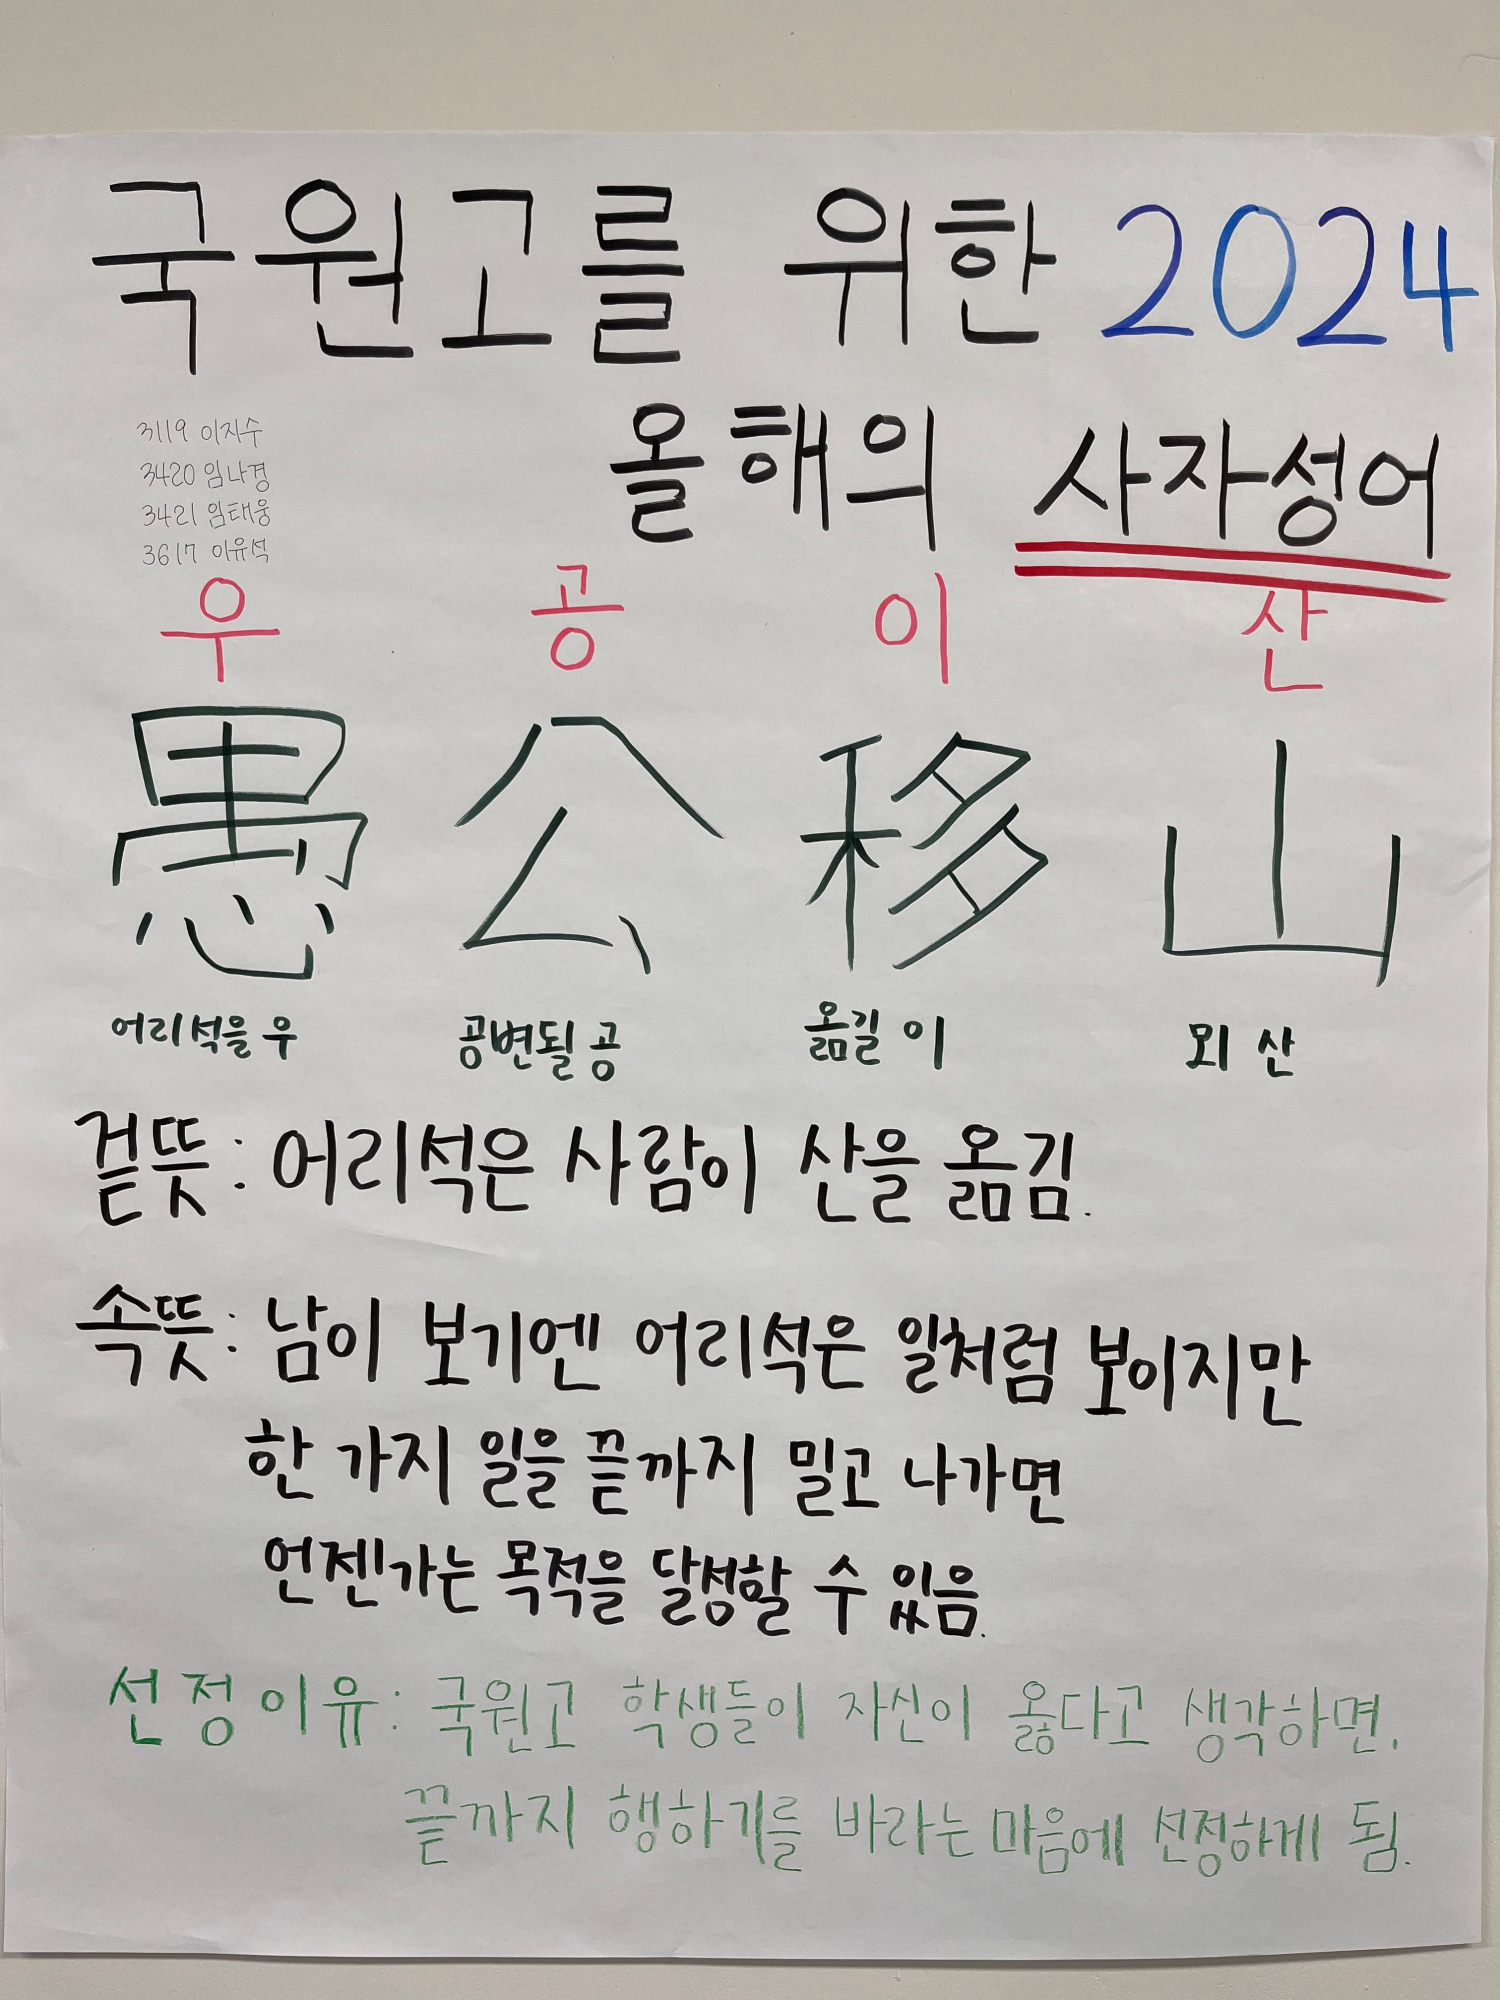 국원고를 위한 2024
올해의 사자성어
3119 이지수
3420 임나경
3421 임태웅
3617 이유석
우 공 이 산
愚 公 移 山
어리석을 우 공변될 공 옮길 이 뫼 산
겉뜻: 어리석은 사람이 산을 옮김.
속뜻: 남이 보기엔 어리석은 일처럼 보이지만
한 가지 일을 끝까지 밀고 나가면
언젠가는 목적을 달성할 수 있음.
선정이유: 국원고 학생들이 자신이 옳다고 생각하면,
끝까지 행하기를 바라는 마음에 선정하게 됨.